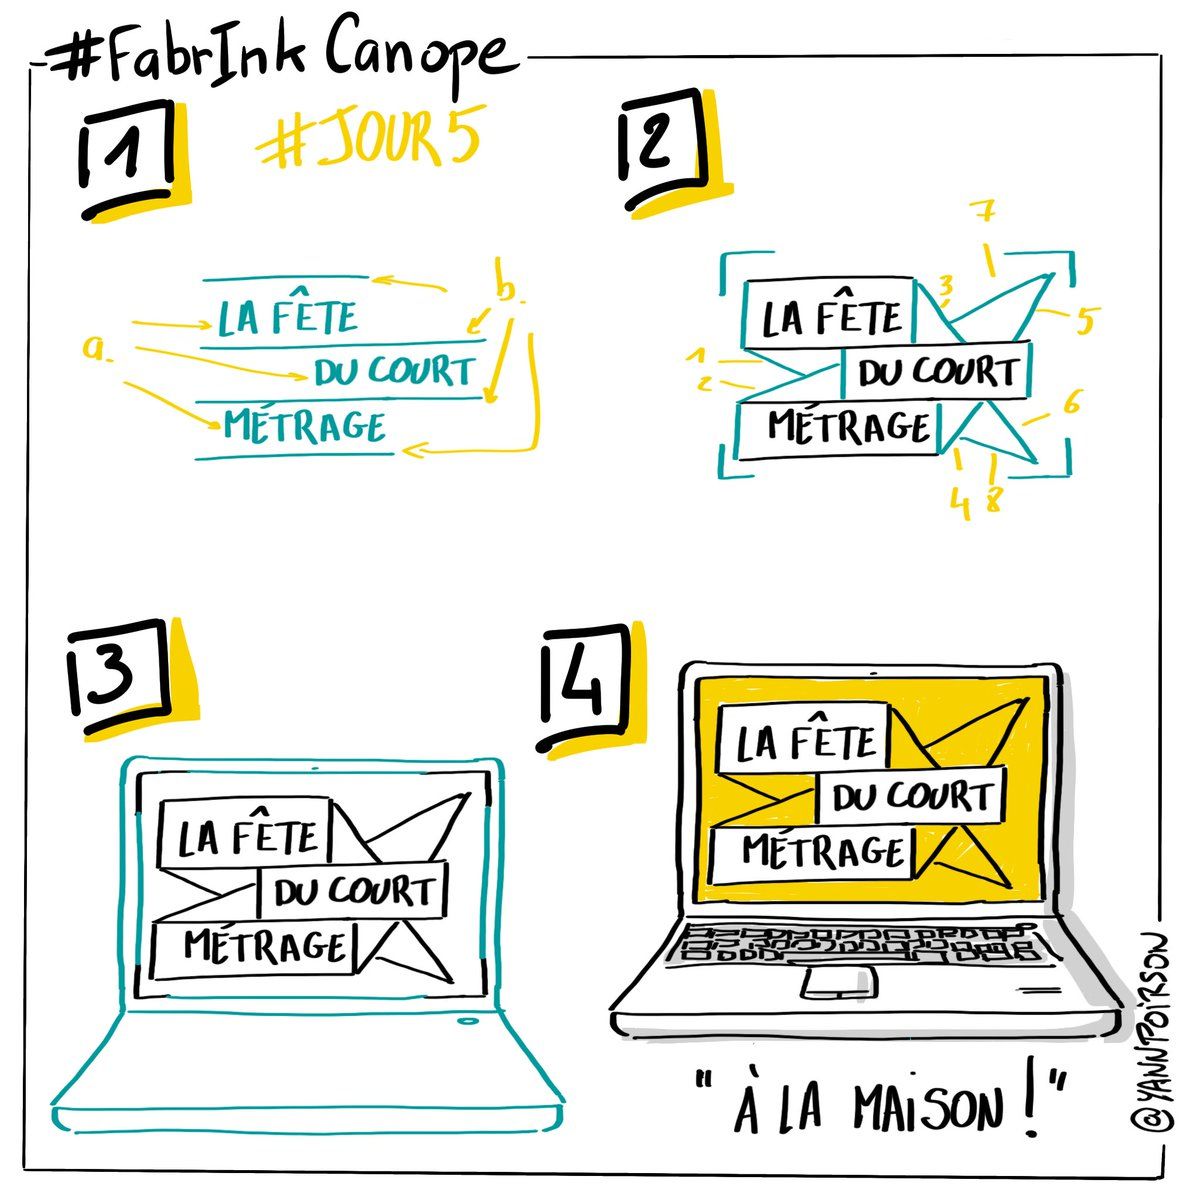 #FabrInk Canope
1
#JOUR5
2
a.
b.
LA FÊTE
DU COURT
MÉTRAGE
7
3
5
LA FÊTE
1
DU COURT
2
6
MÉTRAGE
4
8
3
LA FÊTE
DU COURT
MÉTRAGE
4
LA FÊTE
DU COURT
MÉTRAGE
"À LA MAiSON!"
@YANNPOiRSON